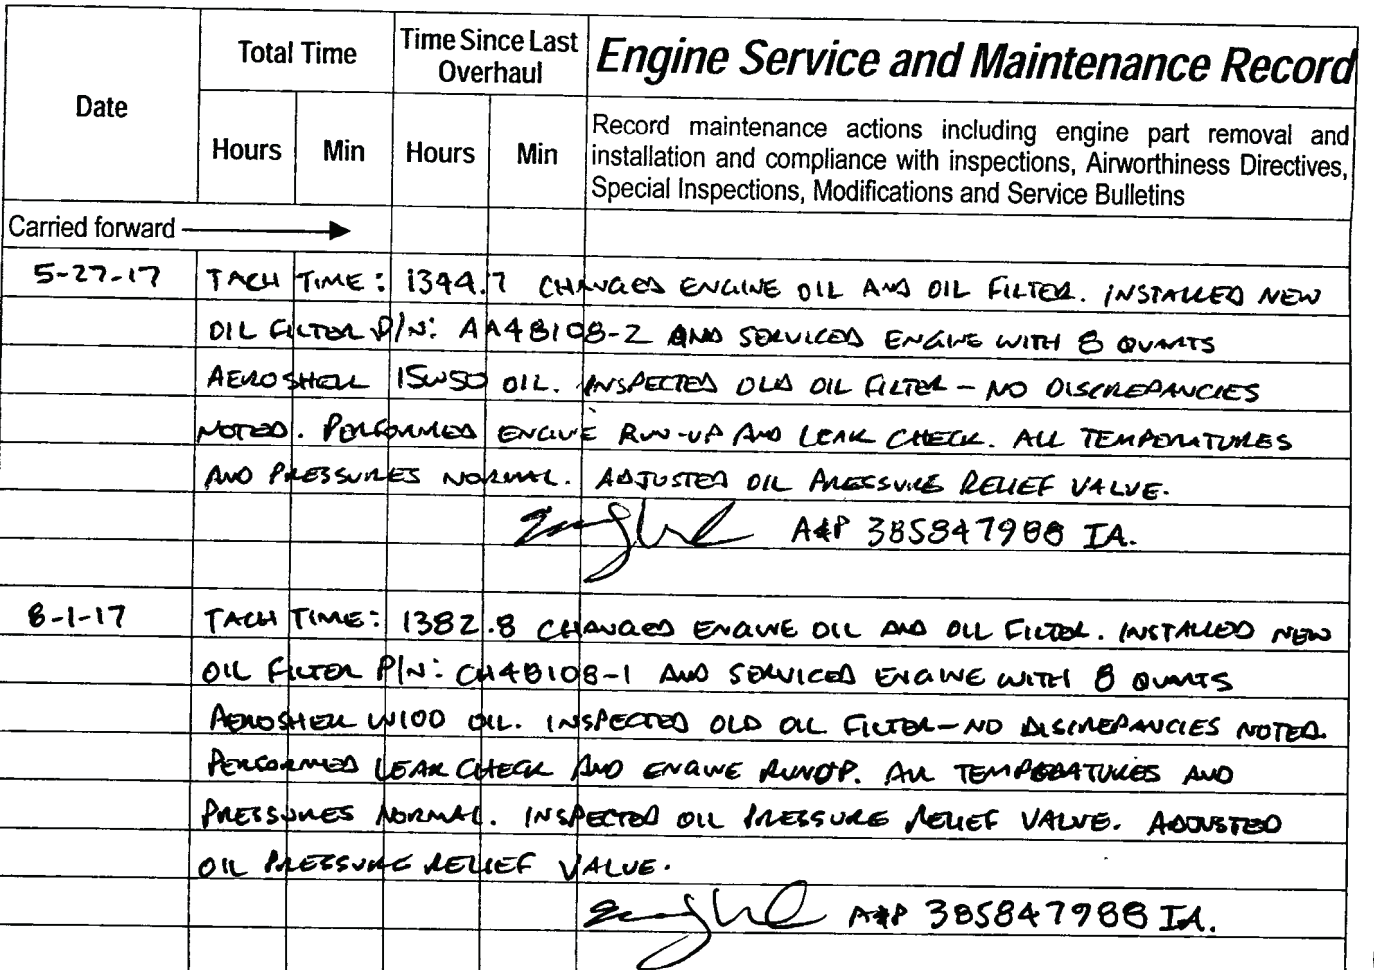 Date
Total Time
Time Since Last Overhaul
Engine Service and Maintenance Record
Hours
Min
Hours
Min
Record maintenance actions including engine part removal and
installation and compliance with inspections, Airworthiness Directives,
Special Inspections, Modifications and Service Bulletins
Carried forward
5-27-17 TACH TIME: 1344.7 CHANGED ENGINE OIL AND OIL FILTER. INSTALLED NEW
OIL FILTER P/N: AA48108-2 AND SERVICED ENGINE WITH 8 QUARTS
AEROSHELL 15W50 OIL. INSPECTED OLD OIL FILTER - NO DISCREPANCIES
NOTED. PERFORMED ENGINE RUN-UP AND LEAK CHECK. ALL TEMPERATURES
AND PRESSURES NORMAL. ADJUSTED OIL PRESSURE RELIEF VALVE.
A&P 385847988 IA.
8-1-17 TACH TIME: 1382.8 CHANGED ENGINE OIL AND OIL FILTER. INSTALLED NEW
OIL FILTER P/N: CH48108-1 AND SERVICED ENGINE WITH 8 QUARTS
AEROSHELL W100 OIL. INSPECTED OLD OIL FILTER - NO DISCREPANCIES NOTED.
PERFORMED LEAK CHECK AND ENGINE RUNUP. ALL TEMPERATURES AND
PRESSURES NORMAL. INSPECTED OIL PRESSURE RELIEF VALVE. ADJUSTED
OIL PRESSURE RELIEF VALVE.
A&P 385847988 IA.